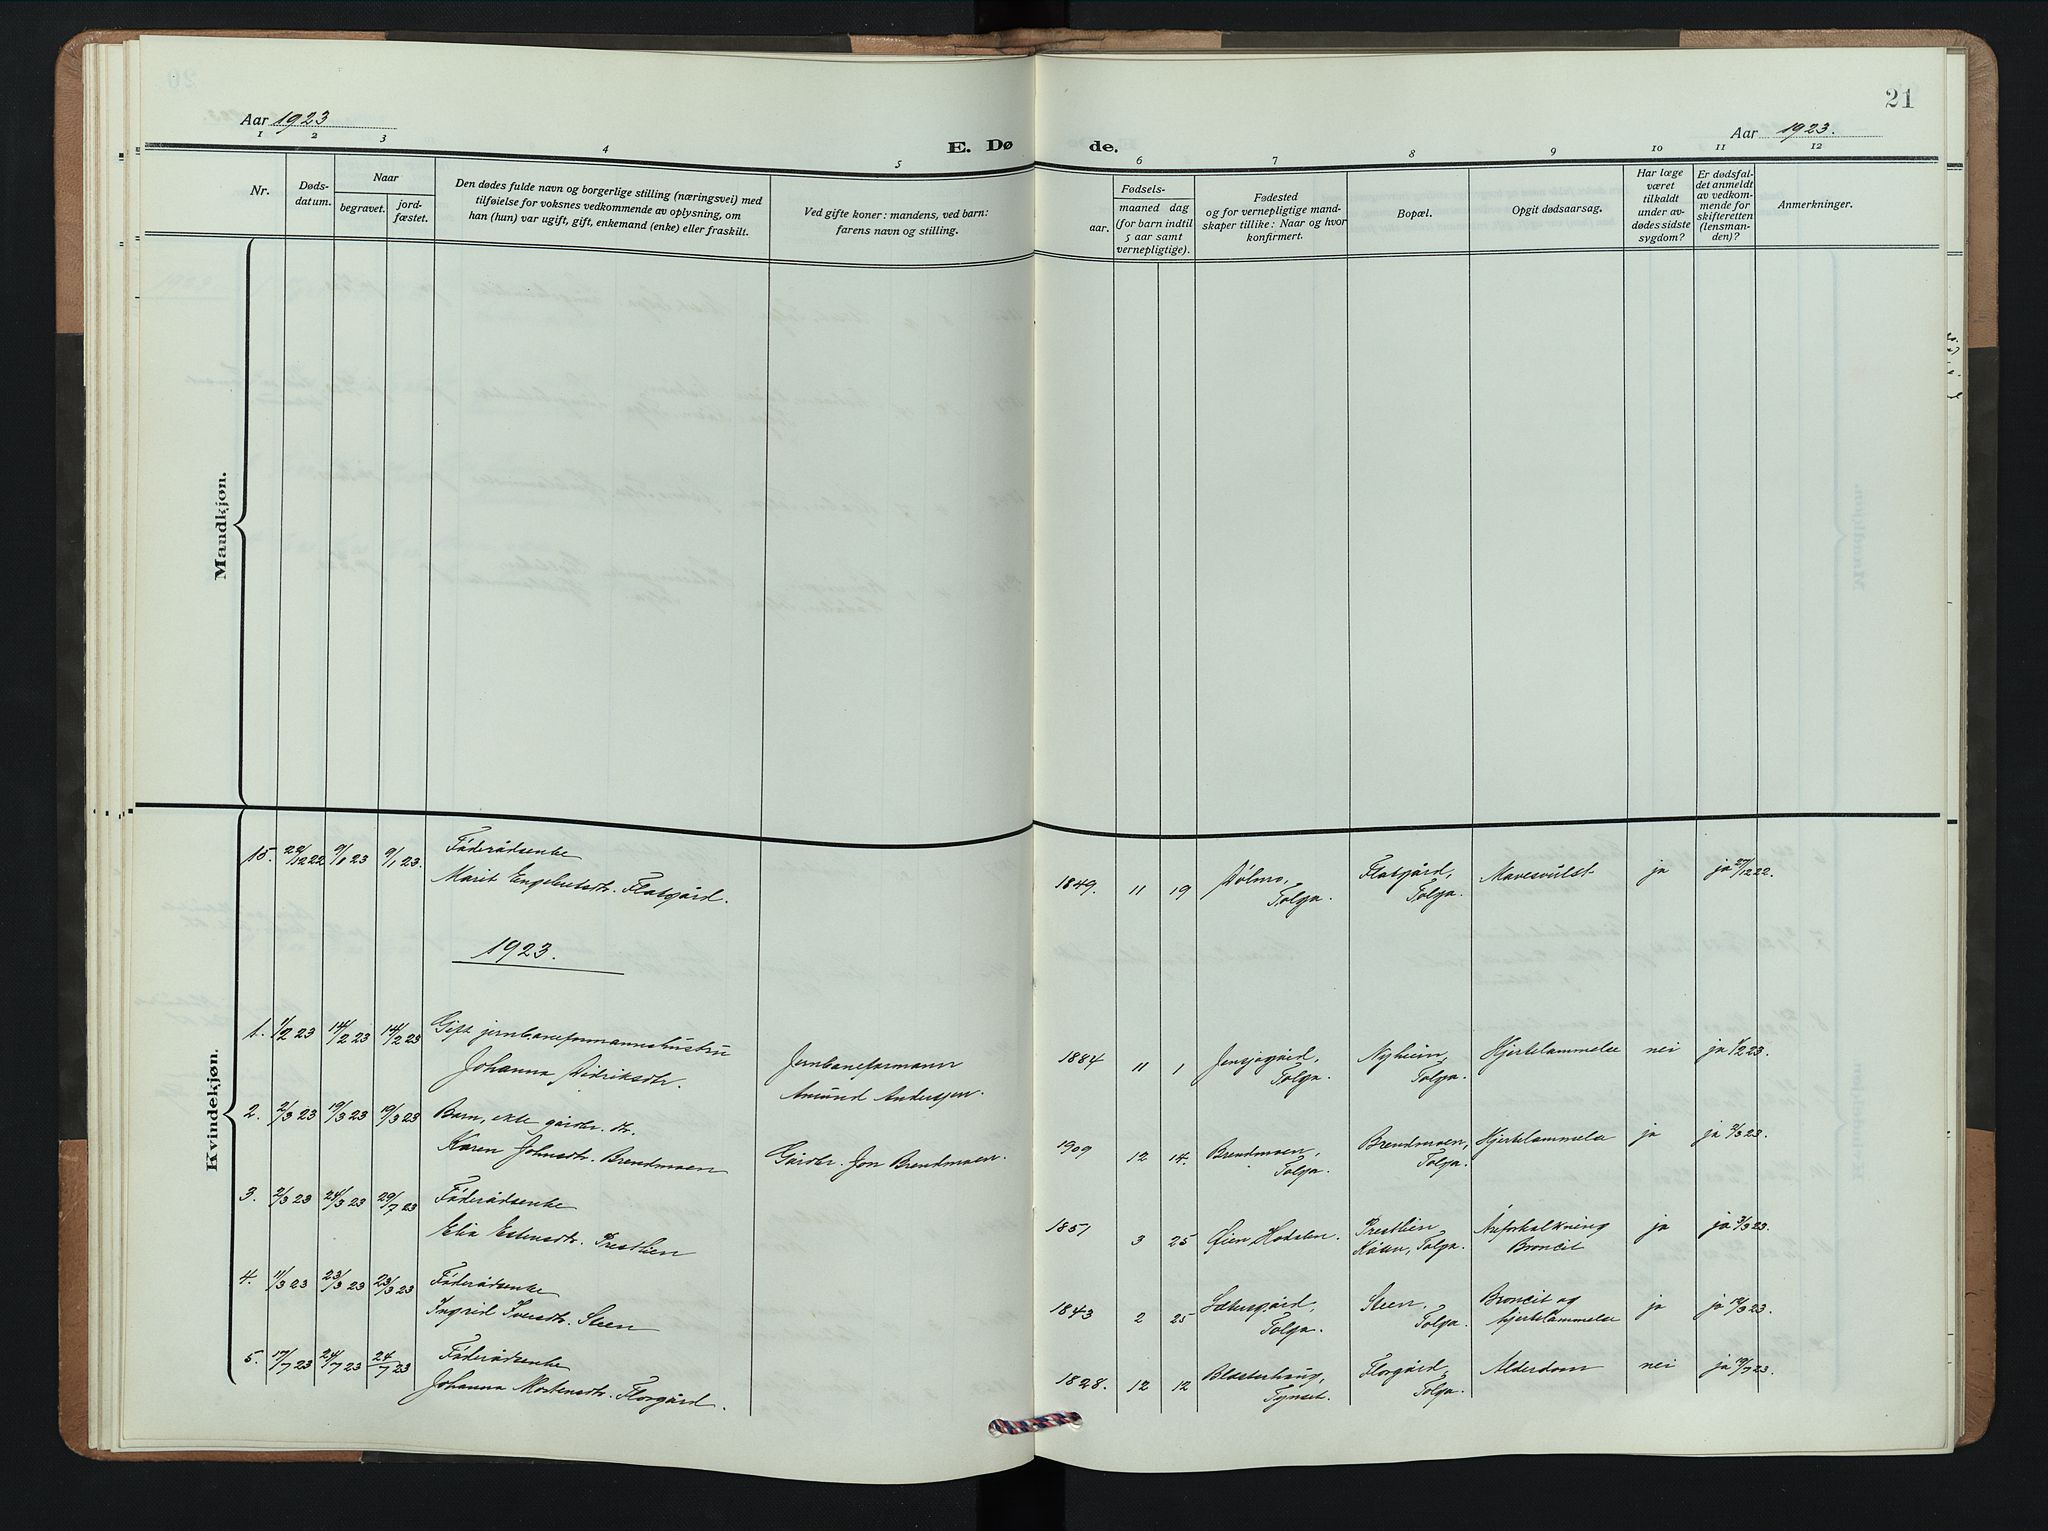 21
Aar 1923
Aar 1923.
E. Dø de.
1 2 3 4 5 6 7 8 9 10 11 12
Nr.
Døds-
datum.
Naar
begravet.
jord-
fæstet.
Den dødes fulde navn og borgerlige stilling (næringsvei) med
tilføielse for voksnes vedkommende av oplysning, om
han (hun) var ugift, gift, enkemand (enke) eller fraskilt.
Ved gifte koner: mandens, ved barn:
farens navn og stilling.
Fødsels-
aar.
maaned dag
(for barn indtil
5 aar samt
vernepligtige).
Fødested
og for vernepligtige mand-
skaper tillike: Naar og hvor
konfirmert.
Bopæl.
Opgit dødsaarsag.
Har læge
været
tilkaldt
under av-
dødes sidste
sygdom?
Er dødsfal-
det anmeldt
av vedkom-
mende for
skifteretten
(lensman-
den)?
Anmerkninger.
Mandkjøn.
Kvindekjøn.
15. 22/12 22 9/1 23 9/1 23. Föderådsenke
Marit Engebretsdtr. Flatgård.
1849. 11 19 Dølmo,
Tolga.
Flatgård,
Tolga.
Mavesvulst ja ja 27/12 22.
1923.
1. 1/2 23 14/2 23 14/2 23 Gift jernbaneformannshustru
Johanna Didriksdtr.
Jernbaneformann
Amund Anderssen.
1884 11 1 Jensjogård,
Tolga.
Nyheim,
Tolga.
Hjertelammelse nei ja 1/2 23.
2. 2/3 23 19/3 23 19/3 23 Barn, ekte gårdbr. dtr.
Karen Johnsdtr. Brendmoen
Gårdbr. Jon Brendmoen.
1909 12 14. Brendmoen,
Tolga.
Brendmoen,
Tolga.
Hjertelammelse ja ja 2/3 23.
3. 2/3 23 24/3 23 29/7 23 Föderådsenke
Elia Estensdtr. Prestlien
1851 3 25 Øien, Hodalen.
Prestlien
Tolga.
Åreforkalkning
Broncit
ja ja 3/3 23.
4. 11/3 23 23/3 23 23/3 23 Föderådsenke
Ingrid Iversdtr. Steen
1843 2 25 Sætersgård,
Tolga.
Steen,
Tolga.
Broncit og
hjertelammelse
ja ja 12/3 23.
5. 17/7 23 24/7 23 24/7 23 Föderådsenke
Johanna Mortensdtr. Florgård.
1828. 12 12 Blæsterhaug,
Tynset.
Florgård,
Tolga.
Alderdom nei ja 19/7 23.